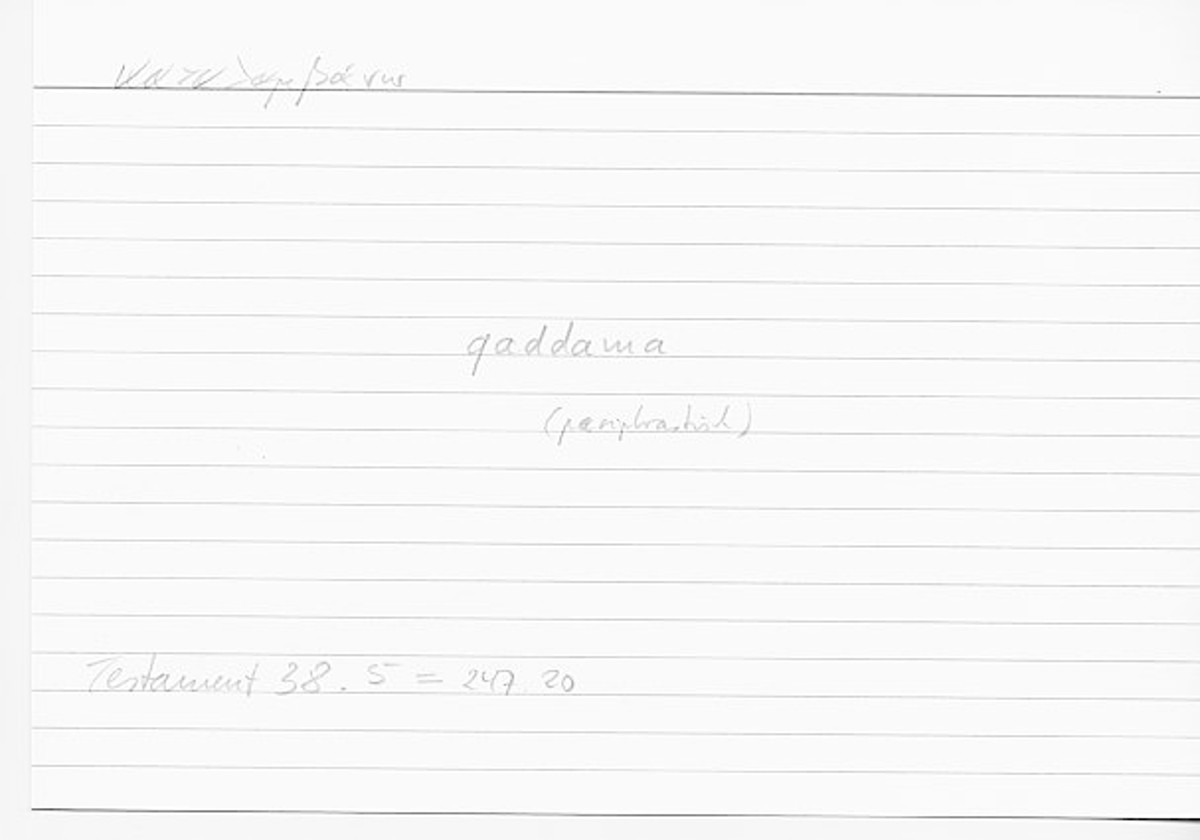 qaddama
(periphrastisch)
Testament 38. 5 = 247 20